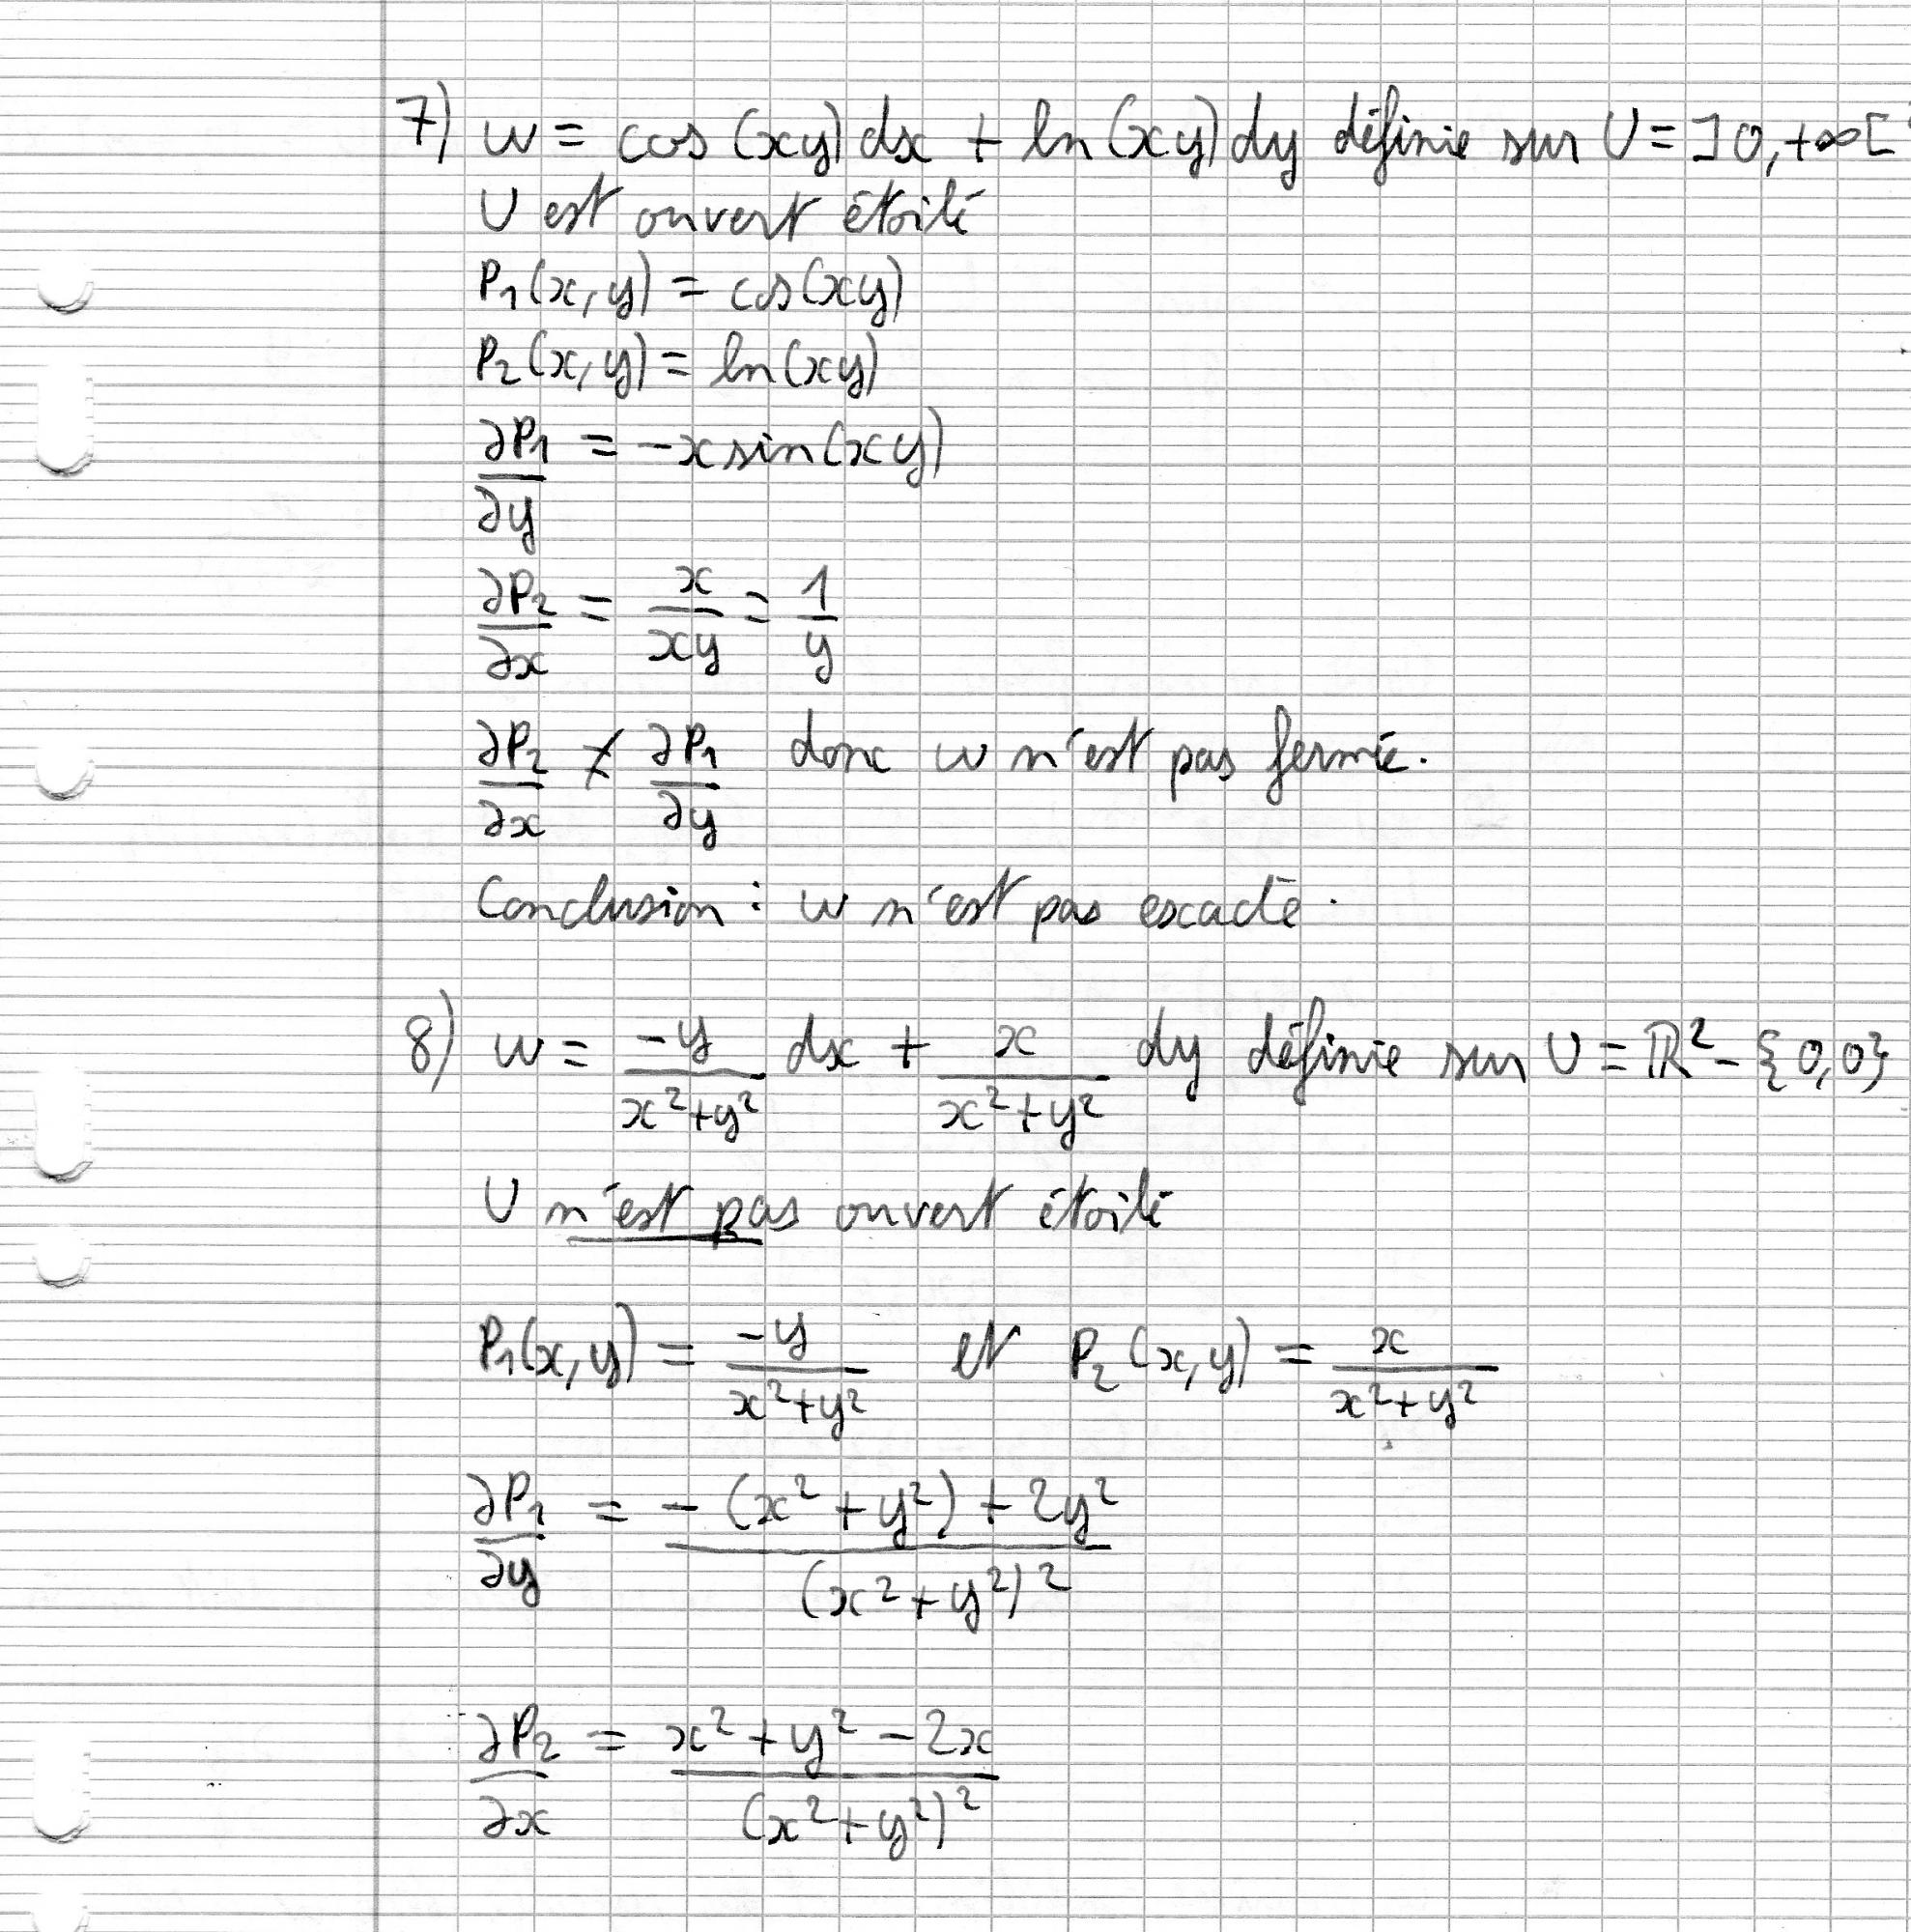 7) w = cos(xy) dx + ln(xy) dy définie sur U = ]0,+∞[
U est ouvert étoilé
P₁(x,y) = cos(xy)
P₂(x,y) = ln(xy)
∂P₁/∂y = -x sin(xy)
∂P₂/∂x = x/xy = 1/y
∂P₂/∂x ≠ ∂P₁/∂y donc w n'est pas fermée.
Conclusion : w n'est pas exacte.
8) w = -y/(x²+y²) dx + x/(x²+y²) dy définie sur U = ℝ² - {0,0}
U n'est pas ouvert étoilé
P₁(x,y) = -y/(x²+y²) et P₂(x,y) = x/(x²+y²)
∂P₁/∂y = (-(x²+y²)+2y²)/(x²+y²)²
∂P₂/∂x = (x²+y²-2x)/(x²+y²)²